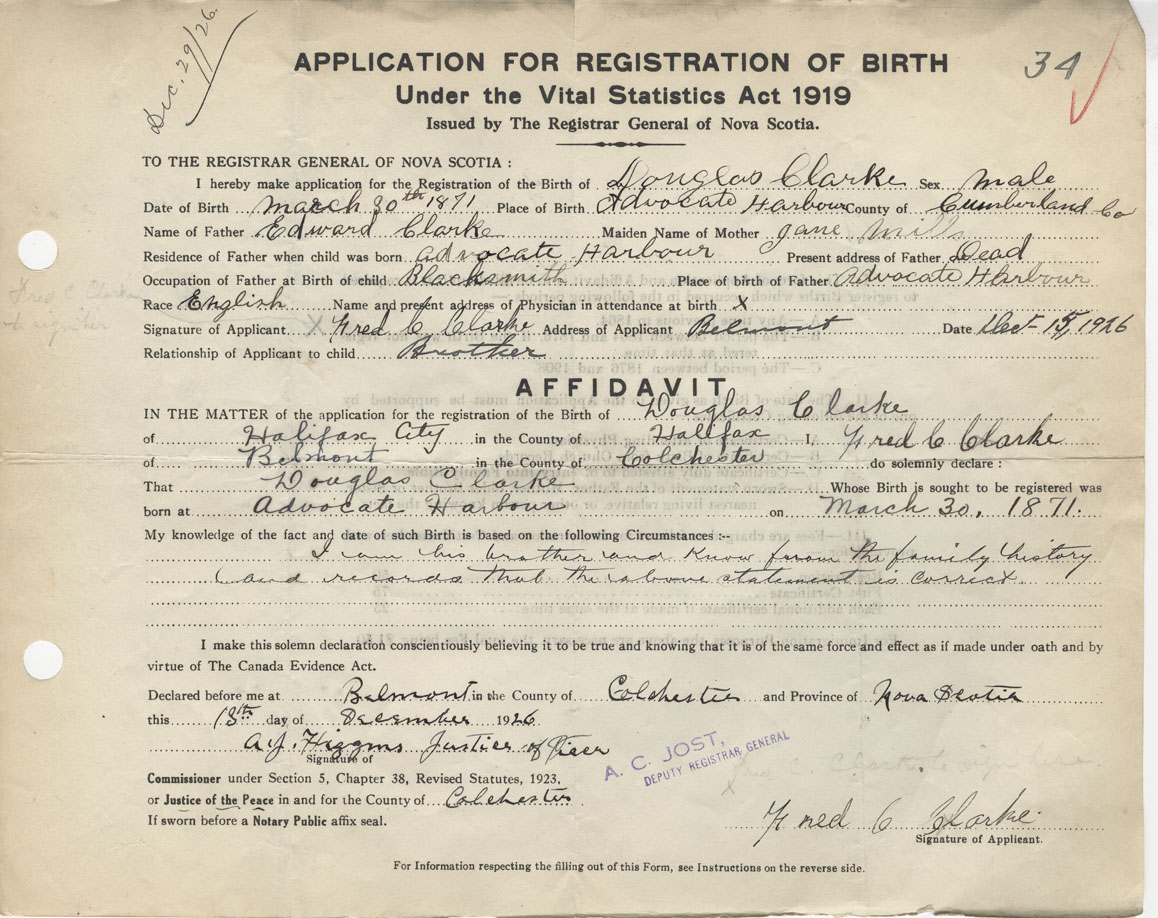 Dec. 29/26
34
APPLICATION FOR REGISTRATION OF BIRTH
Under the Vital Statistics Act 1919
Issued by The Registrar General of Nova Scotia.
TO THE REGISTRAR GENERAL OF NOVA SCOTIA :
I hereby make application for the Registration of the Birth of Douglas Clarke Sex male
Date of Birth March 30th 1871 Place of Birth Advocate Harbour County of Cumberland Co
Name of Father Edward Clarke Maiden Name of Mother Jane Mills
Residence of Father when child was born advocate Harbour Present address of Father Dead
Occupation of Father at Birth of child Blacksmith Place of birth of Father Advocate Harbour
Race English Name and present address of Physician in attendance at birth X
Fred C. Clarke
Signature of Applicant X Fred C Clarke Address of Applicant Belmont Date Dect 15, 1926
Relationship of Applicant to child Brother
AFFIDAVIT
IN THE MATTER of the application for the registration of the Birth of Douglas Clarke
of Halifax City in the County of Halifax I, Fred C Clarke
of Belmont in the County of Colchester do solemnly declare :
That Douglas Clarke Whose Birth is sought to be registered was
born at Advocate Harbour on March 30, 1871.
My knowledge of the fact and date of such Birth is based on the following Circumstances :--
I am his brother and Know from the family history
and records that the above statement is correct.
I make this solemn declaration conscientiously believing it to be true and knowing that it is of the same force and effect as if made under oath and by
virtue of The Canada Evidence Act.
Declared before me at Belmont in the County of Colchester and Province of Nova Scotia
this 18th day of December 1926
A. J. Higgins Justice of Peace
Signature of
A. C. JOST,
DEPUTY REGISTRAR GENERAL
Fred C. Clarke to sign here.
X
Commissioner under Section 5, Chapter 38, Revised Statutes, 1923,
or Justice of the Peace in and for the County of Colchester
If sworn before a Notary Public affix seal.
Fred C Clarke
Signature of Applicant.
For Information respecting the filling out of this Form, see Instructions on the reverse side.